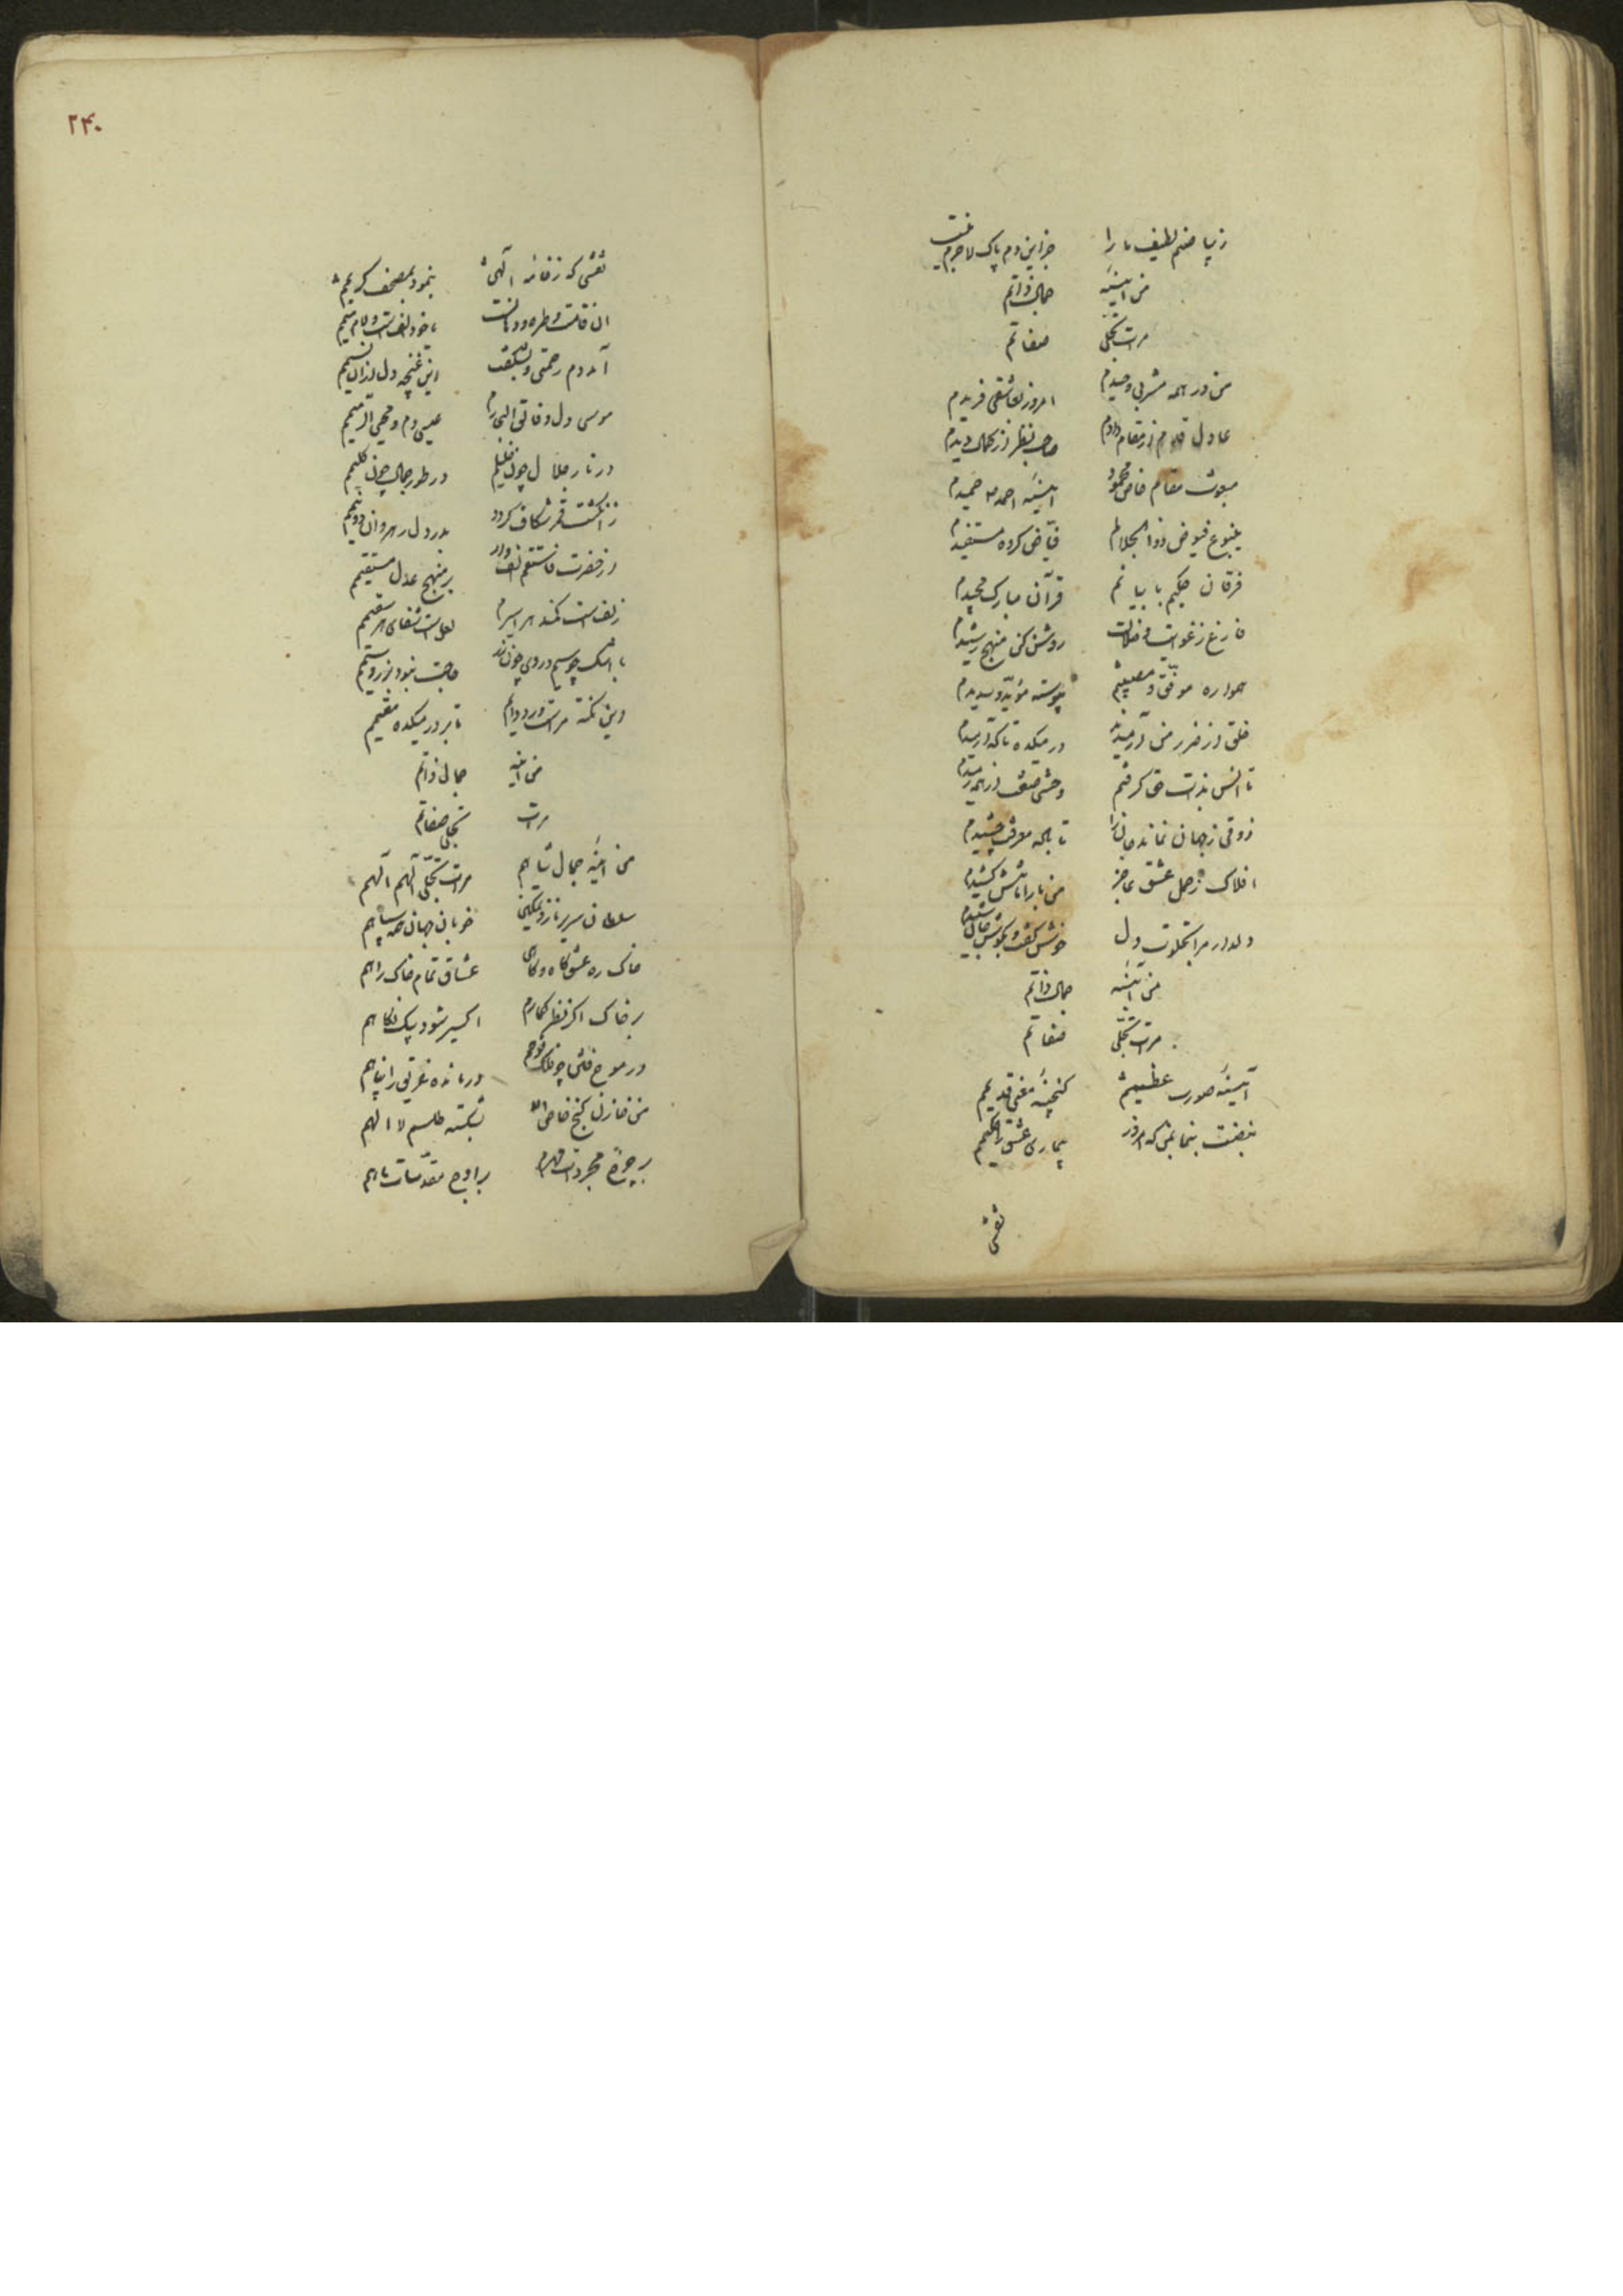 زیبا صنم لطیف ما را جز این دم پاک لاجرم نیست
من آیینه جمال ذاتم
مرآت تجلی صفاتم
من در همه مشربی وحیدم امروز بعاشقی فریدم
عادل قدم از مقام دادم صاحب نظر از کمال دیدم
مبعوث مقام خاص محمود آیینه احمد حمیدم
ینبوع فیوض ذوالجلالم فیاضی کرده مستفیدم
فرقان حکیم با بیانم قرآن مبارک مجیدم
فارغ ز غوایت و ضلالت روشن کن منهج رشیدم
همواره موفق و مصیبم پیوسته مؤید و سدیدم
خلق از ضرر من آرمیدند در میکده تا که آرمیدم
تا انس بذات حق گرفتم وحشی صفت از همه رمیدم
ذوقی ز جهان نماند جان را تا باده معرفت چشیدم
افلاک ز حمل عشق عاجز من بار امانتش کشیدم
دلدار مرا بخلوت دل خوش گفت و بگوش جان شنیدم
من آیینه جمال ذاتم
مرآت تجلی صفاتم
آیینه صورت عظیمم گنجینه معنی قدیمم
نبضت بنمای که امروز بیماری عشق را حکیمم
نقشی
۲۴۰
نقشی که ز خامه الهی بنمود بمصحف کریمم
آن قامت و طره و دهانت با خود الفست و لام و میمم
آمد دم رحمتی و بشکفت این غنچه دل از آن نسیمم
موسی دل و عیسی دم و محیی الرمیمم
در نار جلال چون خلیلم در طور جمال چون کلیمم
ز انگشت قمر شکاف کردد بدر دل رهروان دو نیمم
از حضرت فاستقم الف وار بر منهج عدل مستقیمم
زلفست کمند هر اسیرم لعلست شفای هر سقیمم
با اشک چو سیم و روی چون زر حاجت نبود بزر و سیمم
وین نکته مراست ورد دایم تا بر در میکده مقیمم
من آینه جمال ذاتم
مرآت تجلی صفاتم
من آینه جمال شاهم مرآت تجلی الهم
سلطان سریر ناز و تمکین خوبان جهان همه سپاهم
خاک ره عشق گاه و گاهی عشاق تمام خاک راهم
بر خاک اگر نظر گمارم اکسیر شود بیک نگاهم
در موج فتن چو فلک نوحم درمانده غرق را پناهم
من خازن گنج خاص الا بشکسته طلسم لا الهم
بر چرخ مجردات مهرم بر اوج مقدسات ماهم